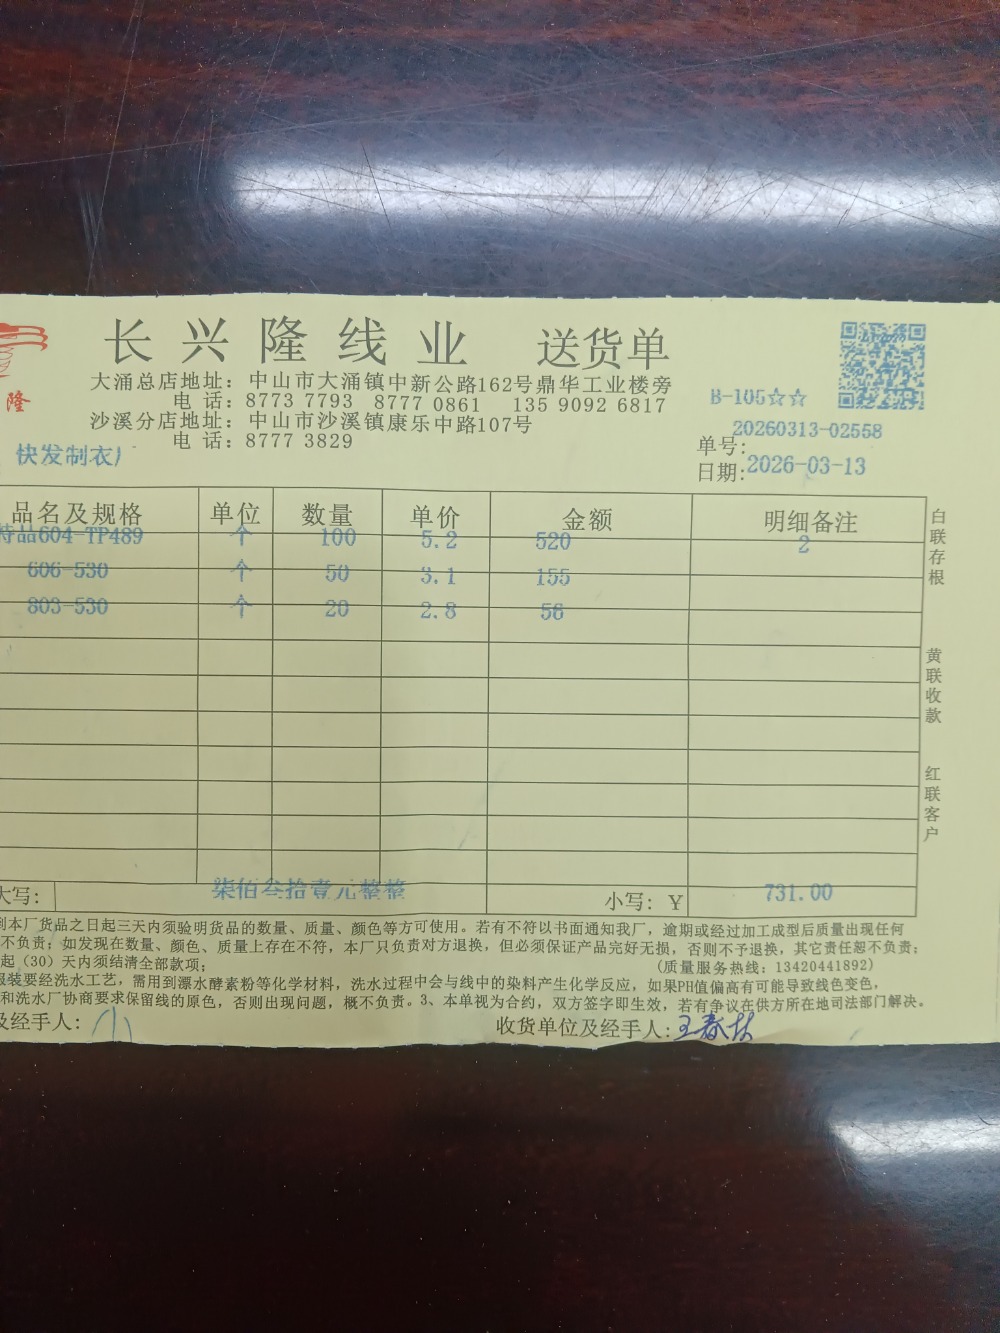 长兴隆线业 送货单
隆
大涌总店地址：中山市大涌镇中新公路162号鼎华工业楼旁
电 话：8773 7793 8777 0861 135 9092 6817
B-105☆☆
沙溪分店地址：中山市沙溪镇康乐中路107号
电 话：8777 3829
20260313-02558
单号：
快发制衣厂
日期：2026-03-13
品名及规格 单位 数量 单价 金额 明细备注
特品604-TP489 个 100 5.2 520 2
606-530 个 50 3.1 155
803-530 个 20 2.8 56
白联存根
黄联收款
红联客户
大写： 柒佰叁拾壹元整整 小写：Y 731.00
到本厂货品之日起三天内须验明货品的数量、质量、颜色等方可使用。若有不符以书面通知我厂，逾期或经过加工成型后质量出现任何
不负责；如发现在数量、颜色、质量上存在不符，本厂只负责对方退换，但必须保证产品完好无损，否则不予退换，其它责任恕不负责；
起（30）天内须结清全部款项； （质量服务热线：13420441892）
服装要经洗水工艺，需用到漂水酵素粉等化学材料，洗水过程中会与线中的染料产生化学反应，如果PH值偏高有可能导致线色变色，
和洗水厂协商要求保留线的原色，否则出现问题，概不负责。3、本单视为合约，双方签字即生效，若有争议在供方所在地司法部门解决。
及经手人： 收货单位及经手人：王春林